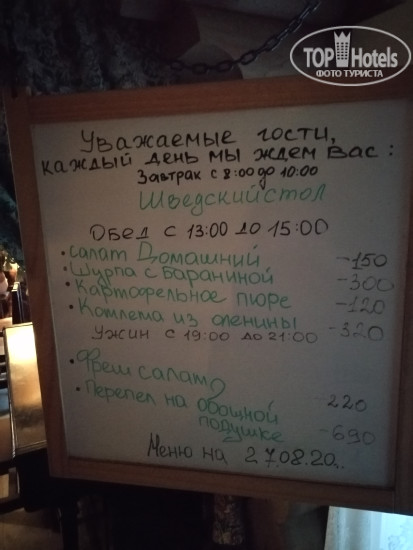 TOP Hotels
ФОТО ТУРИСТА
Уважаемые гости,
каждый день мы ждем Вас:
Завтрак с 8:00 до 10:00
Шведский стол
Обед с 13:00 до 15:00
• Салат Домашний -150
• Шурпа с бараниной -300
• Картофельное пюре -120
• Комлета из оленины -320
Ужин с 19:00 до 21:00
• Фреш салат 220
• Перепел на овощной
подушке -690
Меню на 27.08.20..